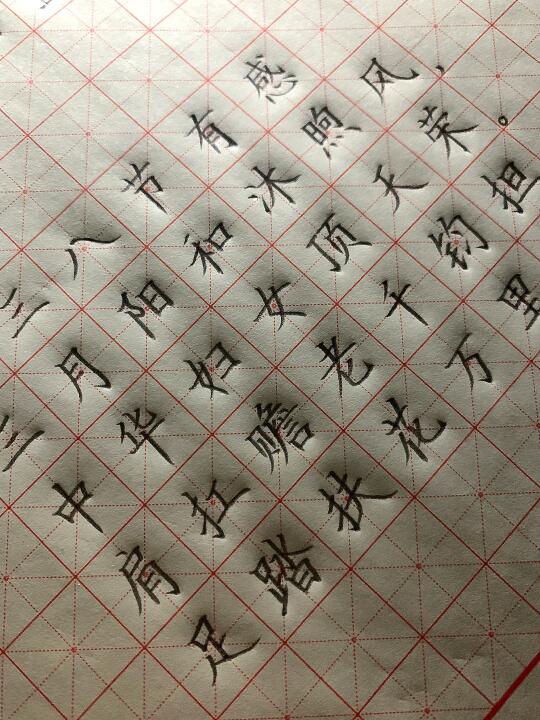 三八节有感
三月阳和沐煦风，
中华妇女顶天荣。
肩扛赡老千钧担
足踏扶花万里